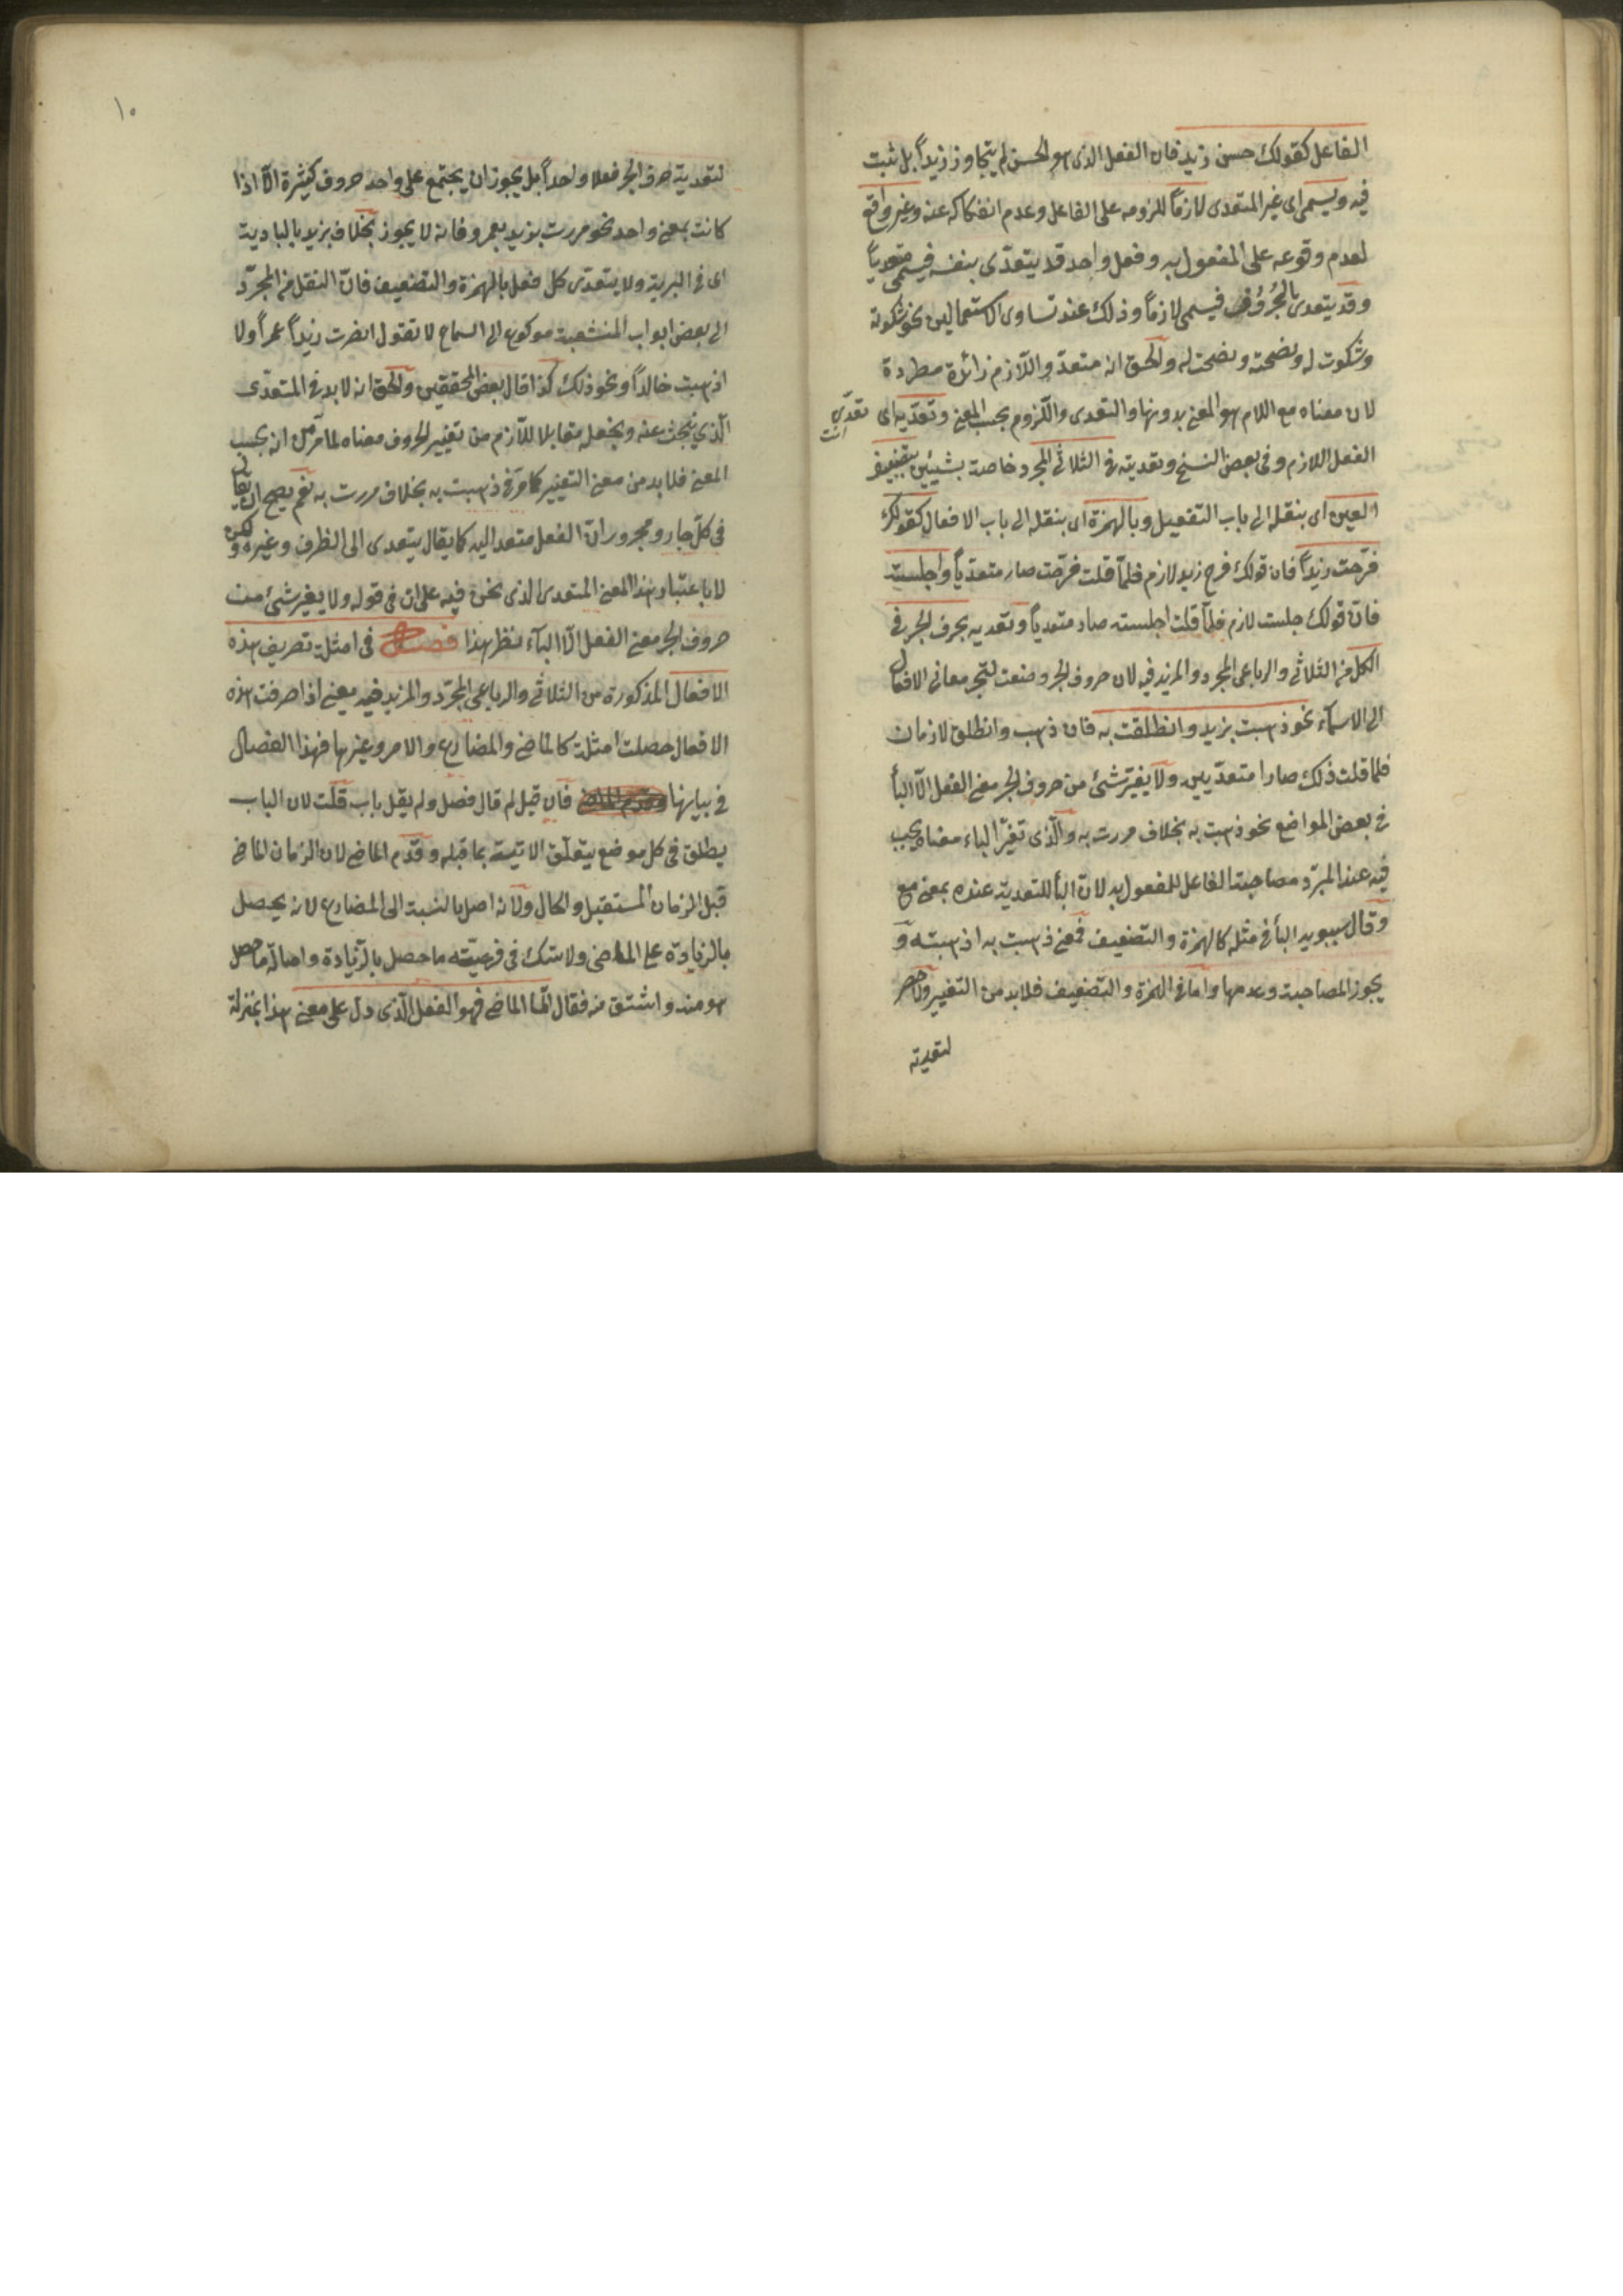 الفاعل كقولك حسن زيد فان الفعل الذى هو الحسن لم يتجاوز زيداً بل ثبت
فيه ويسمى اى غير المتعدى لازماً للزومه على الفاعل وعدم انفكاكه عنه وغير واقع
لعدم وقوعه على المفعول به وفعل واحد قد يتعدّى بنفسه فيسمى متعدياً
وقد يتعدى بالحُرُوف فيسمى لازماً وذلك عند تساوى الاستعمالين نحو شكوته
وشكوت له ونصحته ونصحت له والحق انه متعدّ واللّازم زائدة مطردة
لان معناه مع اللام هو المعنى بدونها والتعدى واللّزوم بحسب المعنى وتعدّيه اى تعدّى انت
الفعل اللازم وفى بعض النسخ وتعديته فى الثلاثى المجرد خاصة بشيئين بتضعيف
العين اى بنقله الى باب التفعيل وبالهمزة اى بنقله الى باب الافعال كقولك
فرّحت زيداً فان قولك فرح زيد لازم فلمّا قلت فرّحت صار متعدّياً واجلسته
فانّ قولك جلست لازم فلمّا قلت اجلسته صار متعدياً وتعديه بحرف الجر فى
الكل من الثلاثى والرباعى المجرد والمزيد فيه لان حروف الجر وضعت لتجر معانى الافعال
الى الاسمآء نحو ذهبت بزيد وانطلقت به فان ذهب وانطلق لازمان
فلما قلت ذلك صارا متعدّيين ولا يغيّر شئ من حروف الجر معنى الفعل الّا البأ
فى بعض المواضع نحو ذهبت به بخلاف مررت به والّذى تغيّر الباء معناه يجب
فيه عند المبرّد مصاحبة الفاعل للمفعول به لانّ البأ للتعدية عنده بمعنى مع
وقال سيبويه البأ فى مثله كالهمزة والتضعيف فمعنى ذهبت به اذهبته و
يجوز المصاحبة وعدمها وامّا فى الهمزة والتضعيف فلا بد من التغيير ولا حصر
لتعدية
١٠
لتعدية حرف الجر فعلا واحداً بل يجوز ان يجتمع على واحد حروف كثيرة الّا اذا
كانت بمعنى واحد نحو مررت بزيد بعمرو فانه لا يجوز بخلاف بزيد بالبادية
اى فى البرية ولا يتعدى كل فعل بالهمزة والتضعيف فانّ النقل من المجرّد
الى بعض ابواب المنشعبة موكول الى السماع لا تقول انصرت زيداً عمراً ولا
اذهبت خالداً ونحو ذلك كذا قال بعض المحققين والحق انه لا بد فى المتعدّى
الّذي نبحث عنه ونجعله مقابلا للّازم من تغيير الحروف معناه لما مرّ من ان بحسب
المعنى فلا بد من معنى التغيير كما مرّ فى ذهبت به بخلاف مررت به نعم يصح ان يقال
فى كلّ جار ومجرور انّ الفعل متعد اليه كما يقال يتعدى الى الظرف وغيره ولكن
لا باعتبار هذا المعنى المتعدى الذى نحن فيه على ان فى قوله ولا يغير شئ من
حروف الجر معنى الفعل الّا البآء نظر هذا فصل فى امثلة تصريف هذه
الافعال المذكورة من الثلاثى والرباعى المجرّد والمزيد فيه يعنى اذا صرفت هذه
الافعال حصلت امثلة كالماضى والمضارع والامر وغيرها فهذا الفصل
فى بيانها فان قيل لم قال فصل ولم يقل باب قلت لان الباب
يطلق فى كل موضع يتعلّق الاتية بما قبله وقدّم الماضى لان الزمان الماضى
قبل الزمان المستقبل والحال ولانه اصل بالنسبة الى المضارع لانه يحصل
بالزيادة على الماضى ولا شك فى فرعيّته ما حصل بالزيادة واصالة ما حصل
هو منه واشتق منه فقال امّا الماضى فهو الفعل الّذى دلّ على معنى هذا بمنزلة